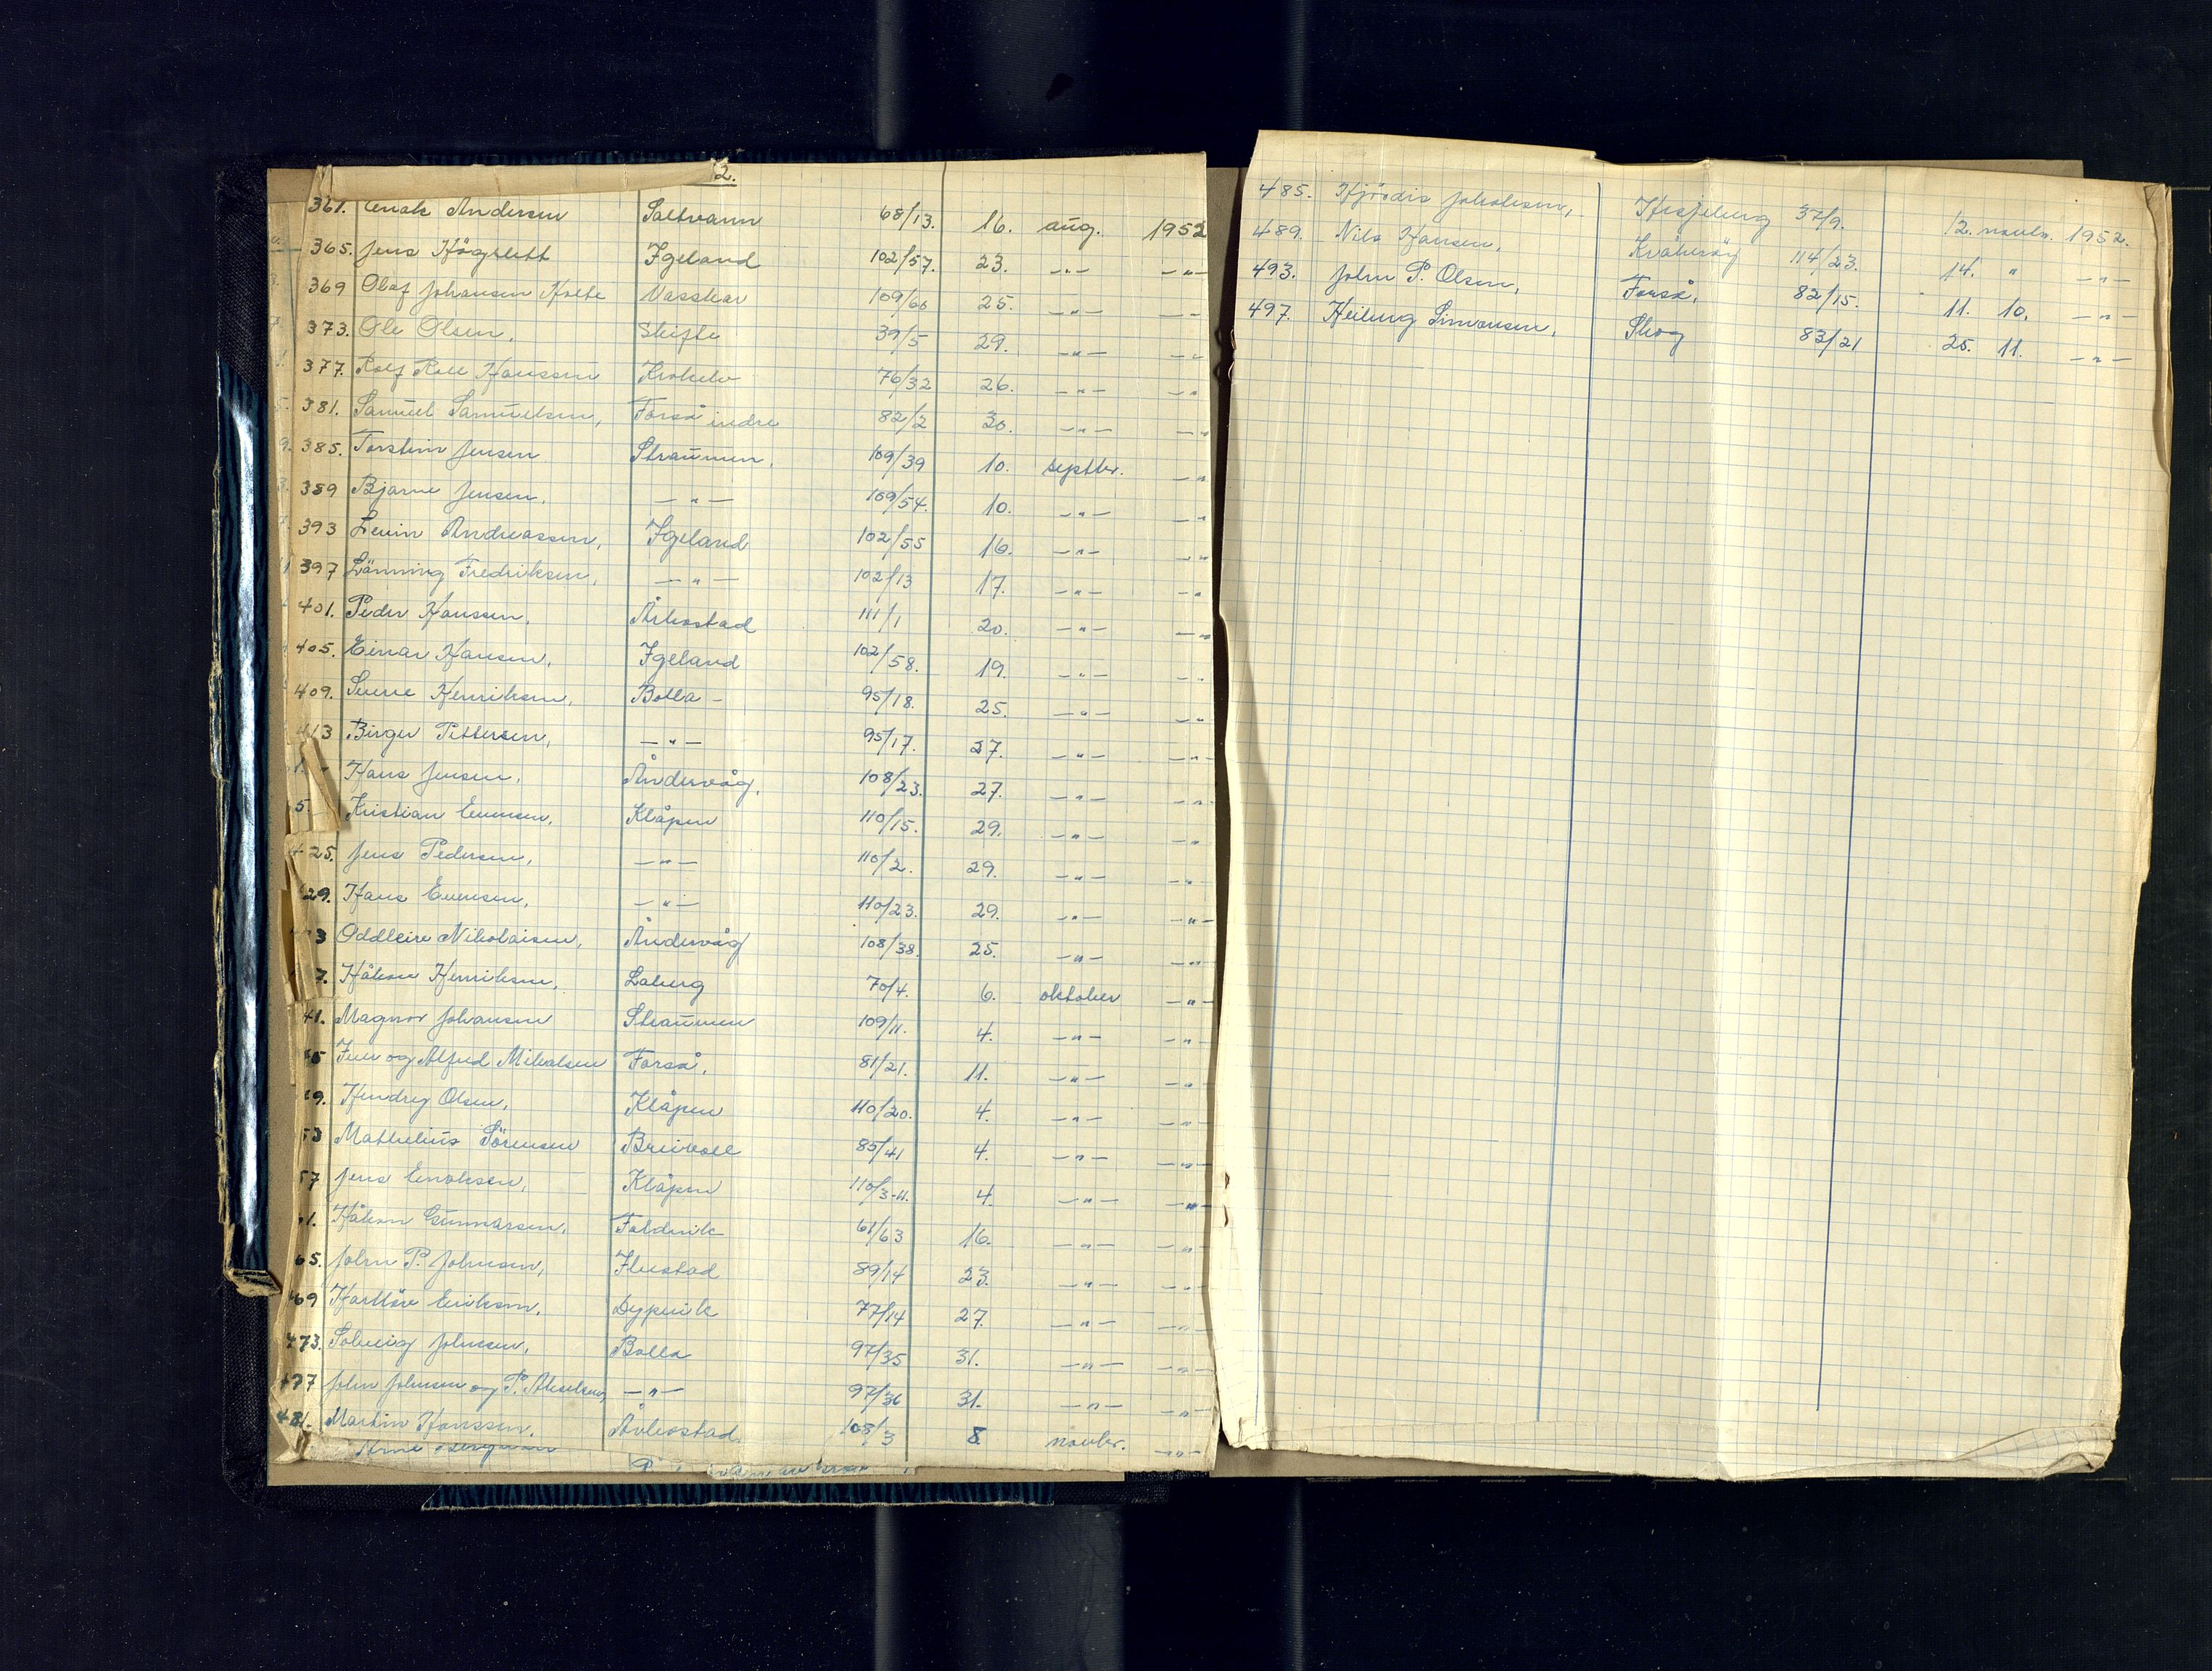 2.
361. Enok Andersen Saltvann 68/13. 16. aug. 1952
365. Jens Högslett Igeland 102/57. 23. —"— —"—
369 Olaf Johansen Kolbe Vasskar 109/66 25. —"— —"—
373. Ole Olsen, Skifte 39/5 29. —"— —"
377. Rolf Roll Hanssen Krokelv 76/32 26. —"— —"
381. Samuel Samuelsen, Forså indre 82/2 30. —"— —"
385. Torstein Jensen Straumen, 109/39 10. septbr. —"
389 Bjarne Jensen, —"— 109/54. 10. —"— —"
393 Levin Andreassen, Igeland 102/55 16. —"— —"
397 Lönning Fredriksen, —"— 102/13 17. —"— —"
401. Peder Hanssen, Årbostad 111/1 20. —"— —"
405. Einar Hansen, Igeland 102/58. 19. —"— —"
409. Sverre Henriksen, Bolla - 95/18. 25. —"— —"
413 Birger Pettersen, —"— 95/17. 27. —"— —"—
Hans Jensen, Åndervåg, 108/23. 27. —"— —"—
Kristian Evensen, Klåpen 110/15. 29. —"— —"
425. Jens Pedersen, —"— 110/2. 29. —"— —"
29. Hans Evensen, —"— 110/23. 29. —"— —"—
3 Oddleiv Nikolaisen, Åndervåg 108/38. 25. —"— —"—
7. Håkon Henriksen, Laberg 70/4. 6. oktober —"—
41. Magnor Johansen Straumen 109/11. 4. —"— —"
45 Iver og Alfred Mikalsen Forså, 81/21. 11. —"— —"
49. Hendry Olsen, Klåpen 110/20. 4. —"— —"—
53 Mathelius Sörensen Breivoll 85/41 4. —"— —"—
57 Jens Enoksen, Klåpen 110/3-11. 4. —"— —"—
61. Håkon Gunnarsen, Foldvik 61/63 16. —"— —"—
65. John P. Johnsen, Ilustad 89/14 23. —"— —"
469 Hartlöv Eriksen, Dypvik 77/14 27. —"— —"—
473. Solveig Johnsen, Bolla 97/35 31. —"— —"—
477 John Johnsen og P. Akselsen, —"— 97/36 31. —"— —"—
481. Martin Hanssen, Årbostad 108/3 8. novbr. —"—
Arne
485. Hjördis Jakobsen, Hesjeberg 37/9. 12. novbr. 1952.
489. Nils Hansen, Kråkeröy 114/23. 14. " —"—
493. John P. Olsen, Forså, 82/15. 11. 10. —"—
497. Heiberg Simonsen, Skog 83/21 25. 11. —"—